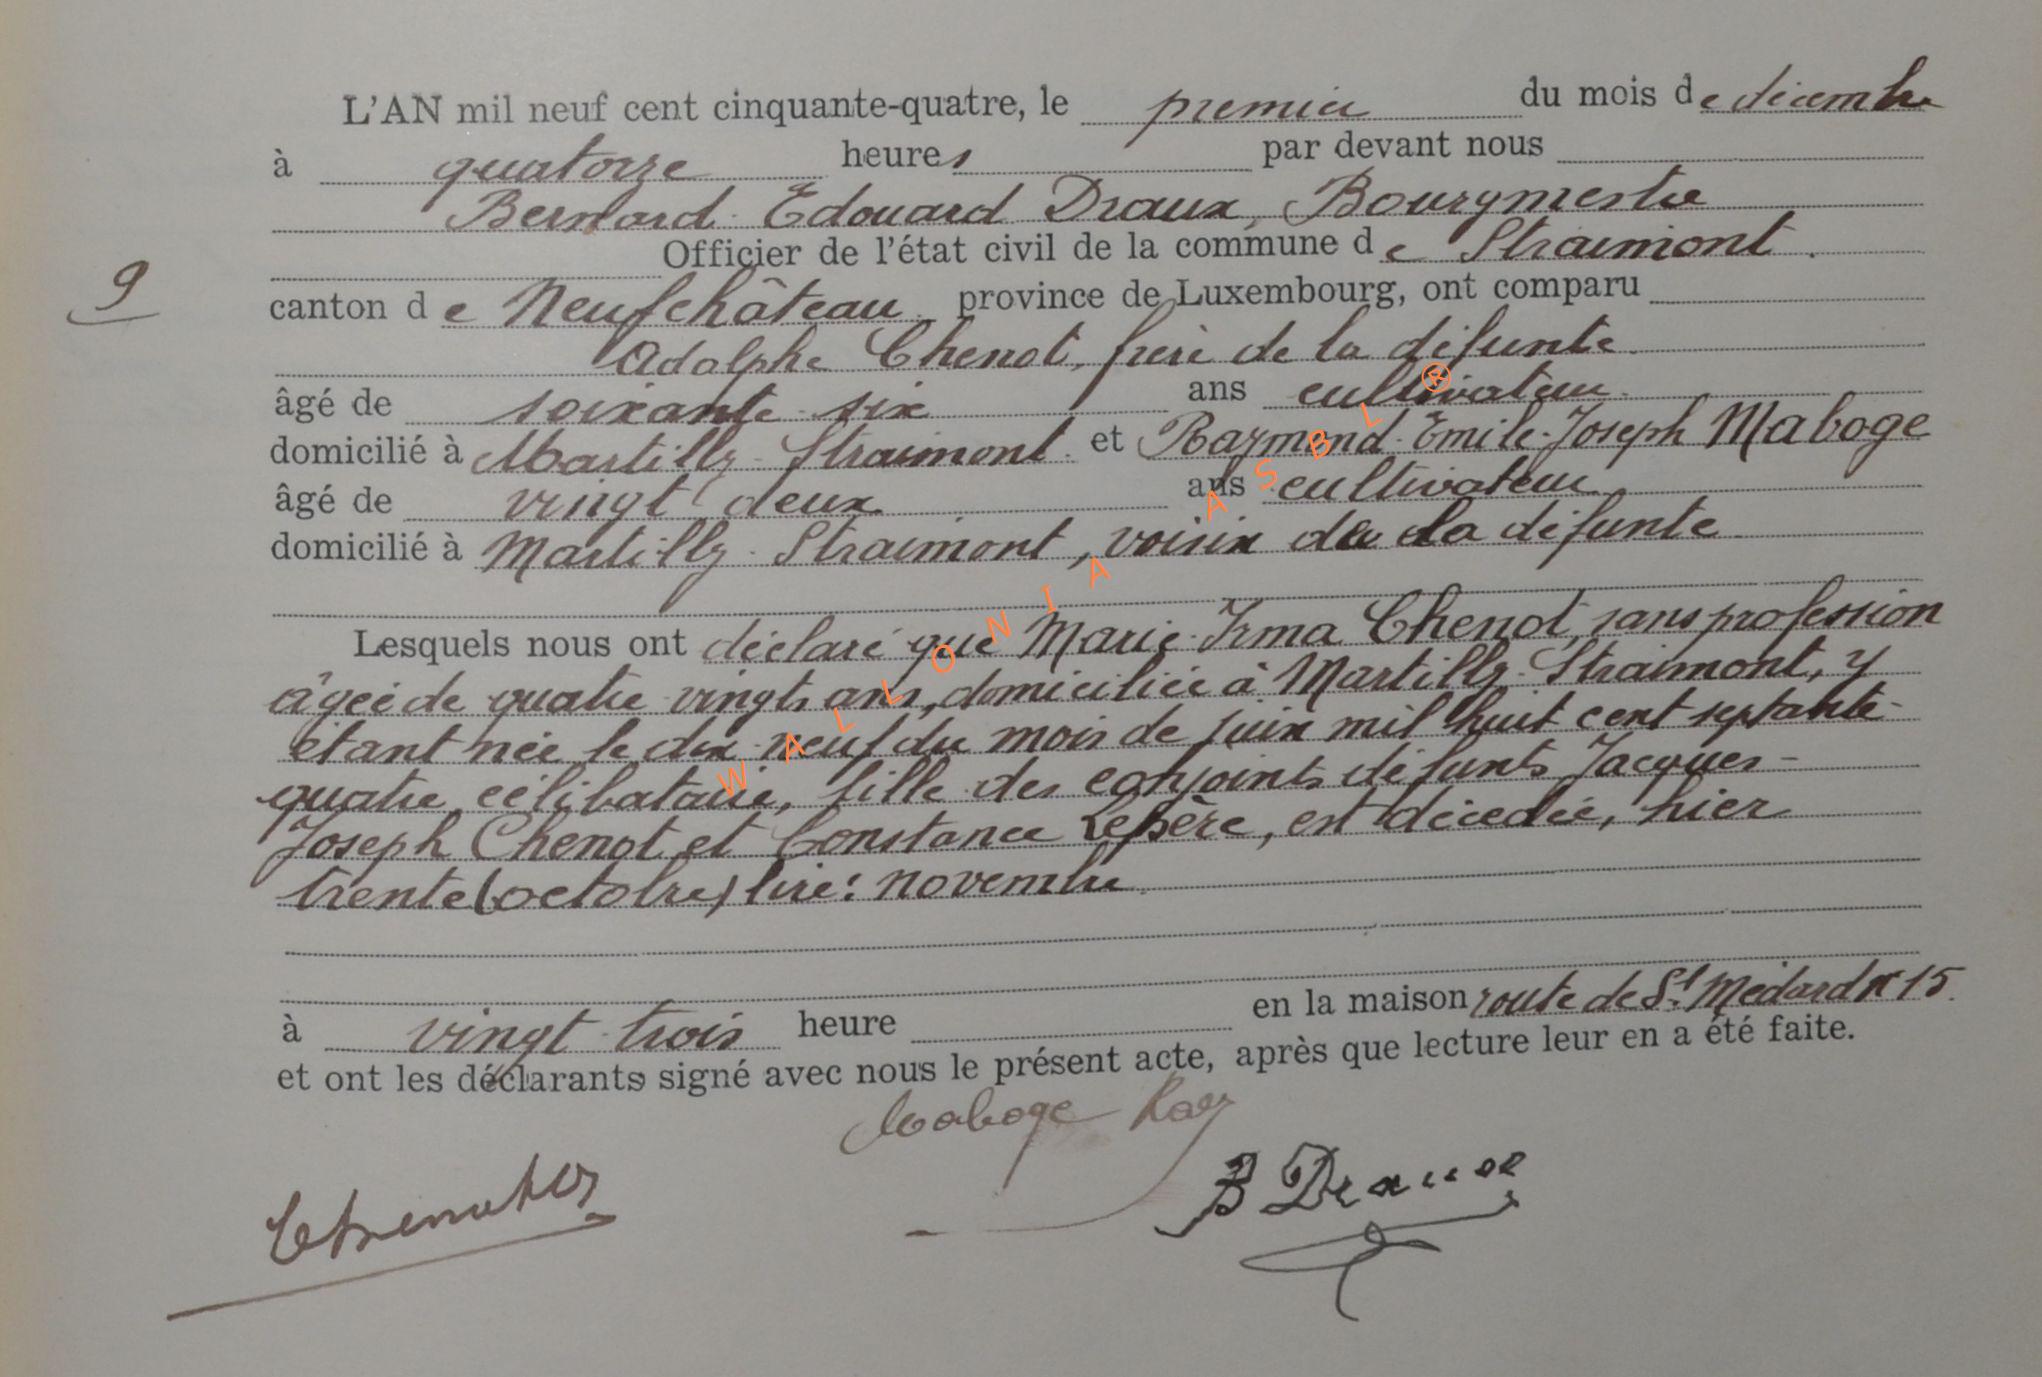 L'AN mil neuf cent cinquante-quatre, le premier du mois de décembre
à quatorze heures par devant nous
Bernard Edouard Draux, Bourgmestre
Officier de l'état civil de la commune de Straimont.
9
canton de Neufchâteau province de Luxembourg, ont comparu
Adolphe Chenot, frère de la défunte
âgé de soixante-six ans cultivateur
domicilié à Martilly-Straimont et Raymond-Emile-Joseph Maboge
âgé de vingt deux ans cultivateur
domicilié à Martilly-Straimont, voisin de la défunte
Lesquels nous ont déclaré que Marie-Irma Chenot, sans profession
âgée de quatre vingts ans, domiciliée à Martilly-Straimont, y
étant née le dix-neuf du mois de juin mil huit cent septante-
quatre, célibataire, fille des conjoints défunts Jacques-
Joseph Chenot et Constance Lepère, est décédée, hier
trente (octobre) lire: novembre
à vingt-trois heure en la maison route de St Médard n° 15
et ont les déclarants signé avec nous le présent acte, après que lecture leur en a été faite.
Maboge Ray
Chenot
B Draux
WALLONIA ASBL ®